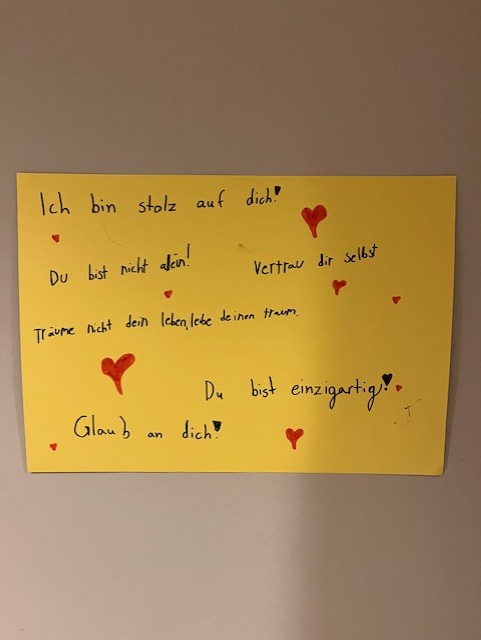 Ich bin stolz auf dich!
Du bist nicht allein!
Vertrau dir selbst
Träume nicht dein leben, lebe deinen traum.
Du bist einzigartig!
Glaub an dich!